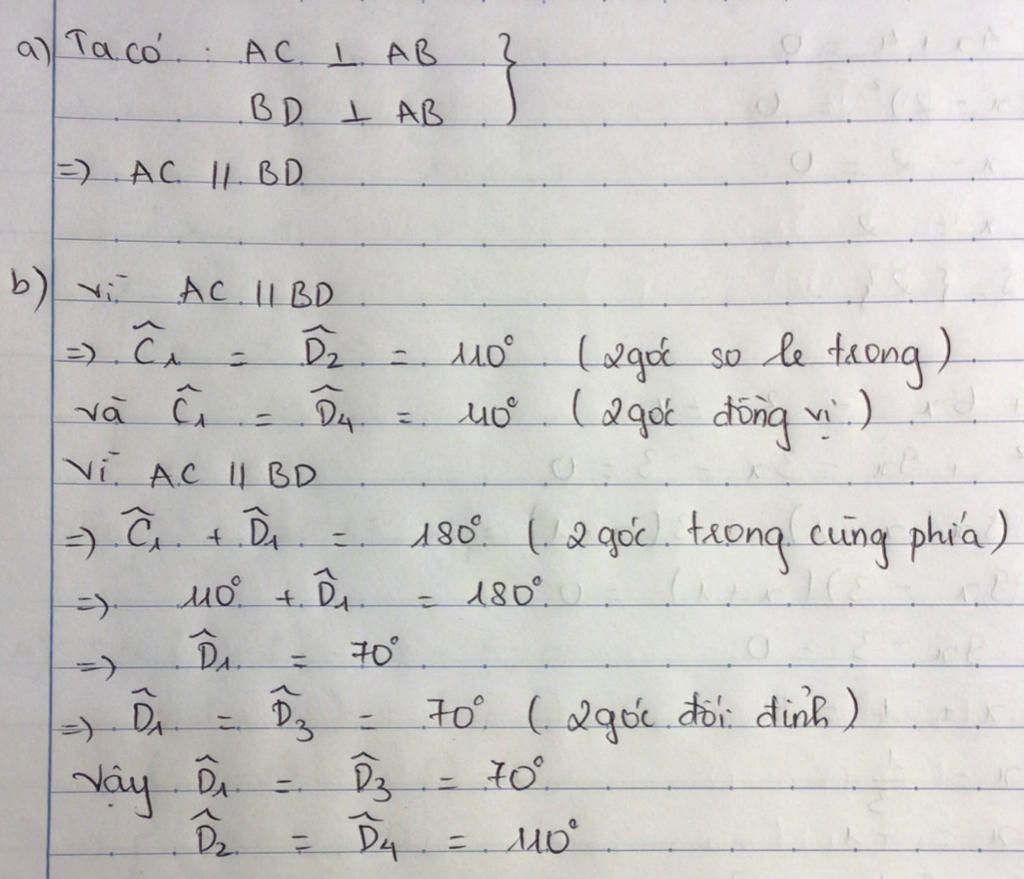 a) Ta có : AC ⊥ AB }
BD ⊥ AB
=> AC // BD
b) Vì AC // BD
=> Ĉ₁ = D̂₂ = 110° (2 góc so le trong)
và Ĉ₁ = D̂₄ = 110° (2 góc đồng vị)
Vì AC // BD
=> Ĉ₁ + D̂₁ = 180° (2 góc trong cùng phía)
=> 110° + D̂₁ = 180°
=> D̂₁ = 70°
=> D̂₁ = D̂₃ = 70° (2 góc đối đỉnh)
Vậy D̂₁ = D̂₃ = 70°
D̂₂ = D̂₄ = 110°